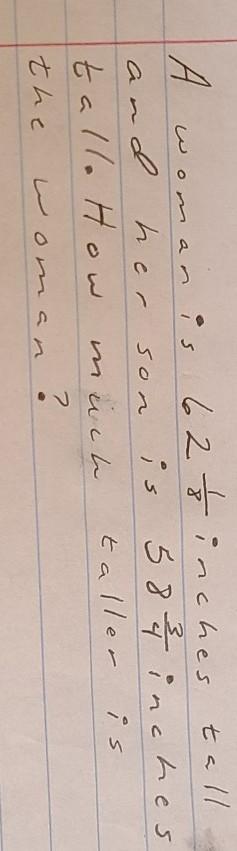 A woman is 62 1/8 inches tall
and her son is 58 3/4 inches
tall. How much taller is
the woman?